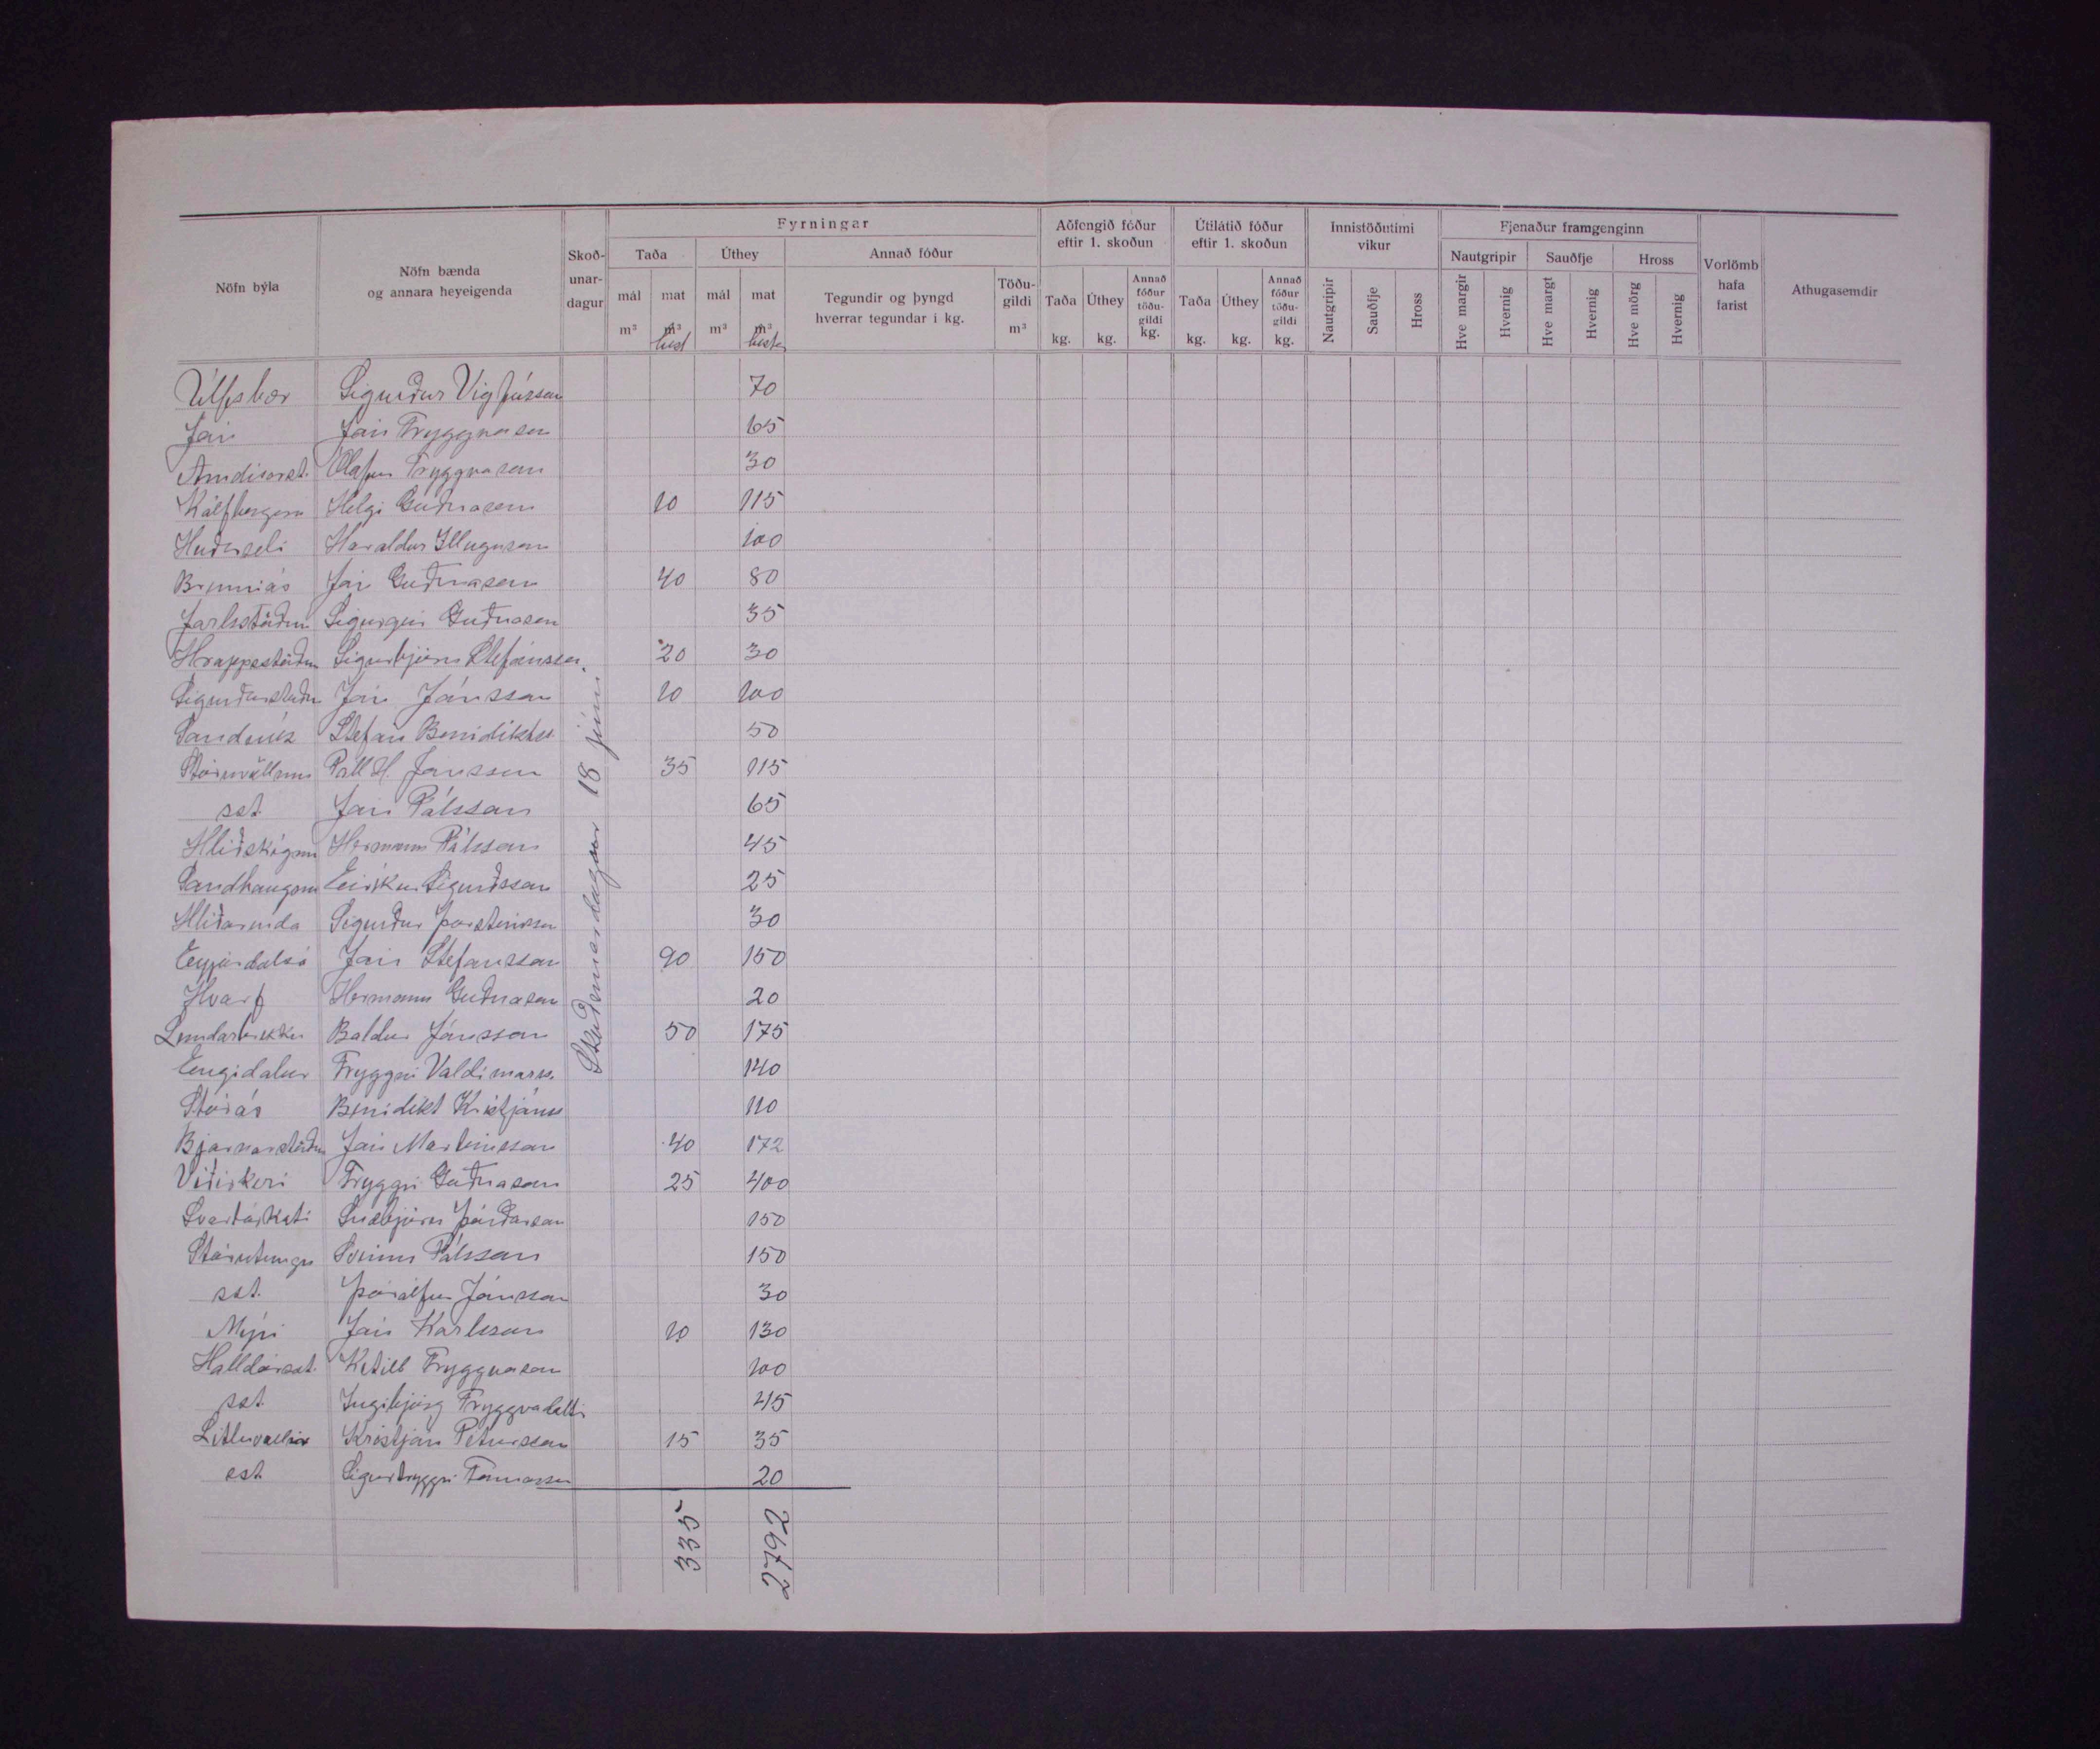 Nöfn býla
Nöfn bænda og annara heyeigenda
Skoð-unar-dagur
Fyrningar
Taða
Úthey
Annað fóður
mál m³
mat m³ hest
mál m³
mat m³ hestar
Tegundir og þyngd hverrar tegundar i kg.
Töðu-gildi m³
Aðfengið fóður eftir 1. skoðun
Taða kg.
Úthey kg.
Annað fóður töðu-gildi kg.
Útilátið fóður eftir 1. skoðun
Taða kg.
Úthey kg.
Annað fóður töðu-gildi kg.
Innistöðutími vikur
Nautgripir
Sauðfje
Hross
Fjenaður framgenginn
Nautgripir
Sauðfje
Hross
Hve margir
Hvernig
Hve margt
Hvernig
Hve mörg
Hvernig
Vorlömb hafa farist
Athugasemdir
Úlfsbær Sigurður Vigfússon 70
Jón Tryggvason 65
Arndísarst. Ólafur Tryggvason 30
Kálfborgará Helgi Guðnason 10 115
Haraldur Illugason 100
Brunnás Jón Guðnason 40 80
Jarlsstaðir Sigurgeir Guðnason 35
Hrappsstaðir Sigurbjörn Stefánsson 20 30
Sigurðarstaðir Jón Jónsson 10 100
Sandvík Stefán Benidiktss 50
Stóruvellum Páll H. Jónsson 35 115
sst. Jón Pálsson 65
Hlíðskógum Hermann Pálsson 45
Sandhaugum Eiríkur Sigurðsson 25
Hlíðarenda Sigurður Þorsteinsson 30
Eyjardalsá Jón Stefánsson 90 150
Hvarf Hermann Guðnason 20
Lundarbrekku Baldur Jónsson 50 175
Engidalur Tryggvi Valdimarss. 140
Stórás Benidikt Kristjánss 110
Bjarnarstaðir Jón Marteinsson 40 172
Víðikeri Tryggvi Guðnason 25 400
Svartárkoti Snæbjörn Þórðarson 150
Stórutungu Sveinn Pálsson 150
sst. Þórólfur Jónsson 30
Mýri Jón Karlsson 10 130
Halldórsst. Ketill Tryggvason 100
sst Ingibjörg Tryggvadóttir 45
Litluvellir Kristján Pétursson 15 35
sst Sigurtryggvi Tómasson 20
335 2792
Skoðunardagur 18 júní